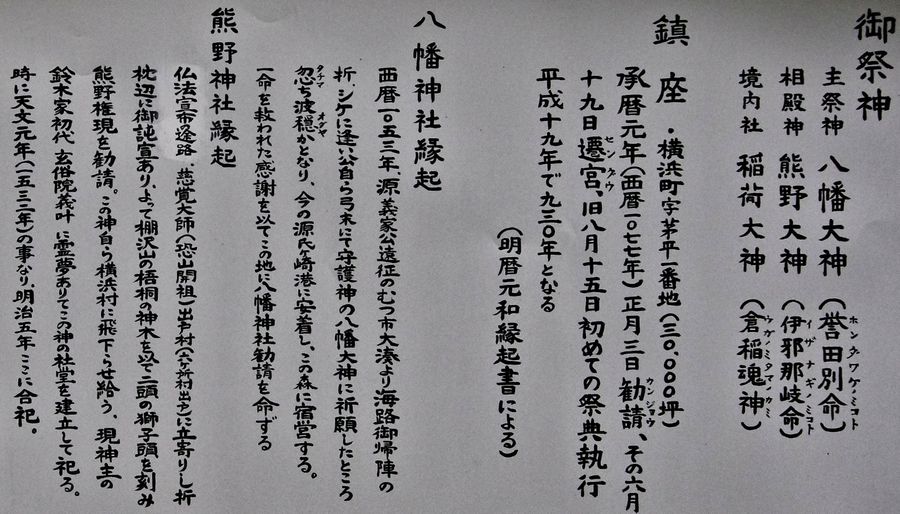 御祭神
主祭神 八幡大神(誉田別命)
ホンダワケノミコト
相殿神 熊野大神(伊邪那岐命)
イザナギノミコト
境内社 稲荷大神(倉稲魂神)
ウケノミタマノカミ
鎮座・横浜町字茅平一番地(三〇.〇〇〇坪)
承暦元年(西暦一〇七七年)正月三日勧請、その六月
カンジョウ
十九日遷宮、旧八月十五日初めての祭典執行
センクウ
平成十九年で九三〇年となる
(明暦元和縁起書による)
八幡神社縁起
西暦一〇五三年、源義家公遠征のむつ市大湊より海路御帰陣の
折、シケに逢い公自ら弓末にて守護神の八幡大神に祈願したところ
忽ち波穏かとなり、今の源氏ヶ崎港に安着し、この森に宿営する。
タチマ オダヤ
一命を救われた感謝を以てこの地に八幡神社勧請を命ずる
熊野神社縁起
仏法宣布逢路、慈覚大師(恐山開祖)出戸村(六ヶ所村出戸)に立寄りし折
枕辺に御託宣あり、よって棚沢山の梧桐の神木を以て二頭の獅子頭を刻み
熊野権現を勧請。この神自ら横浜村に飛下らせ給う、現神主の
鈴木家初代 玄俗院義叶 に霊夢ありてこの神の社堂を建立して祀る。
時に天文元年(一五三二年)の事なり、明治五年ここに合祀。